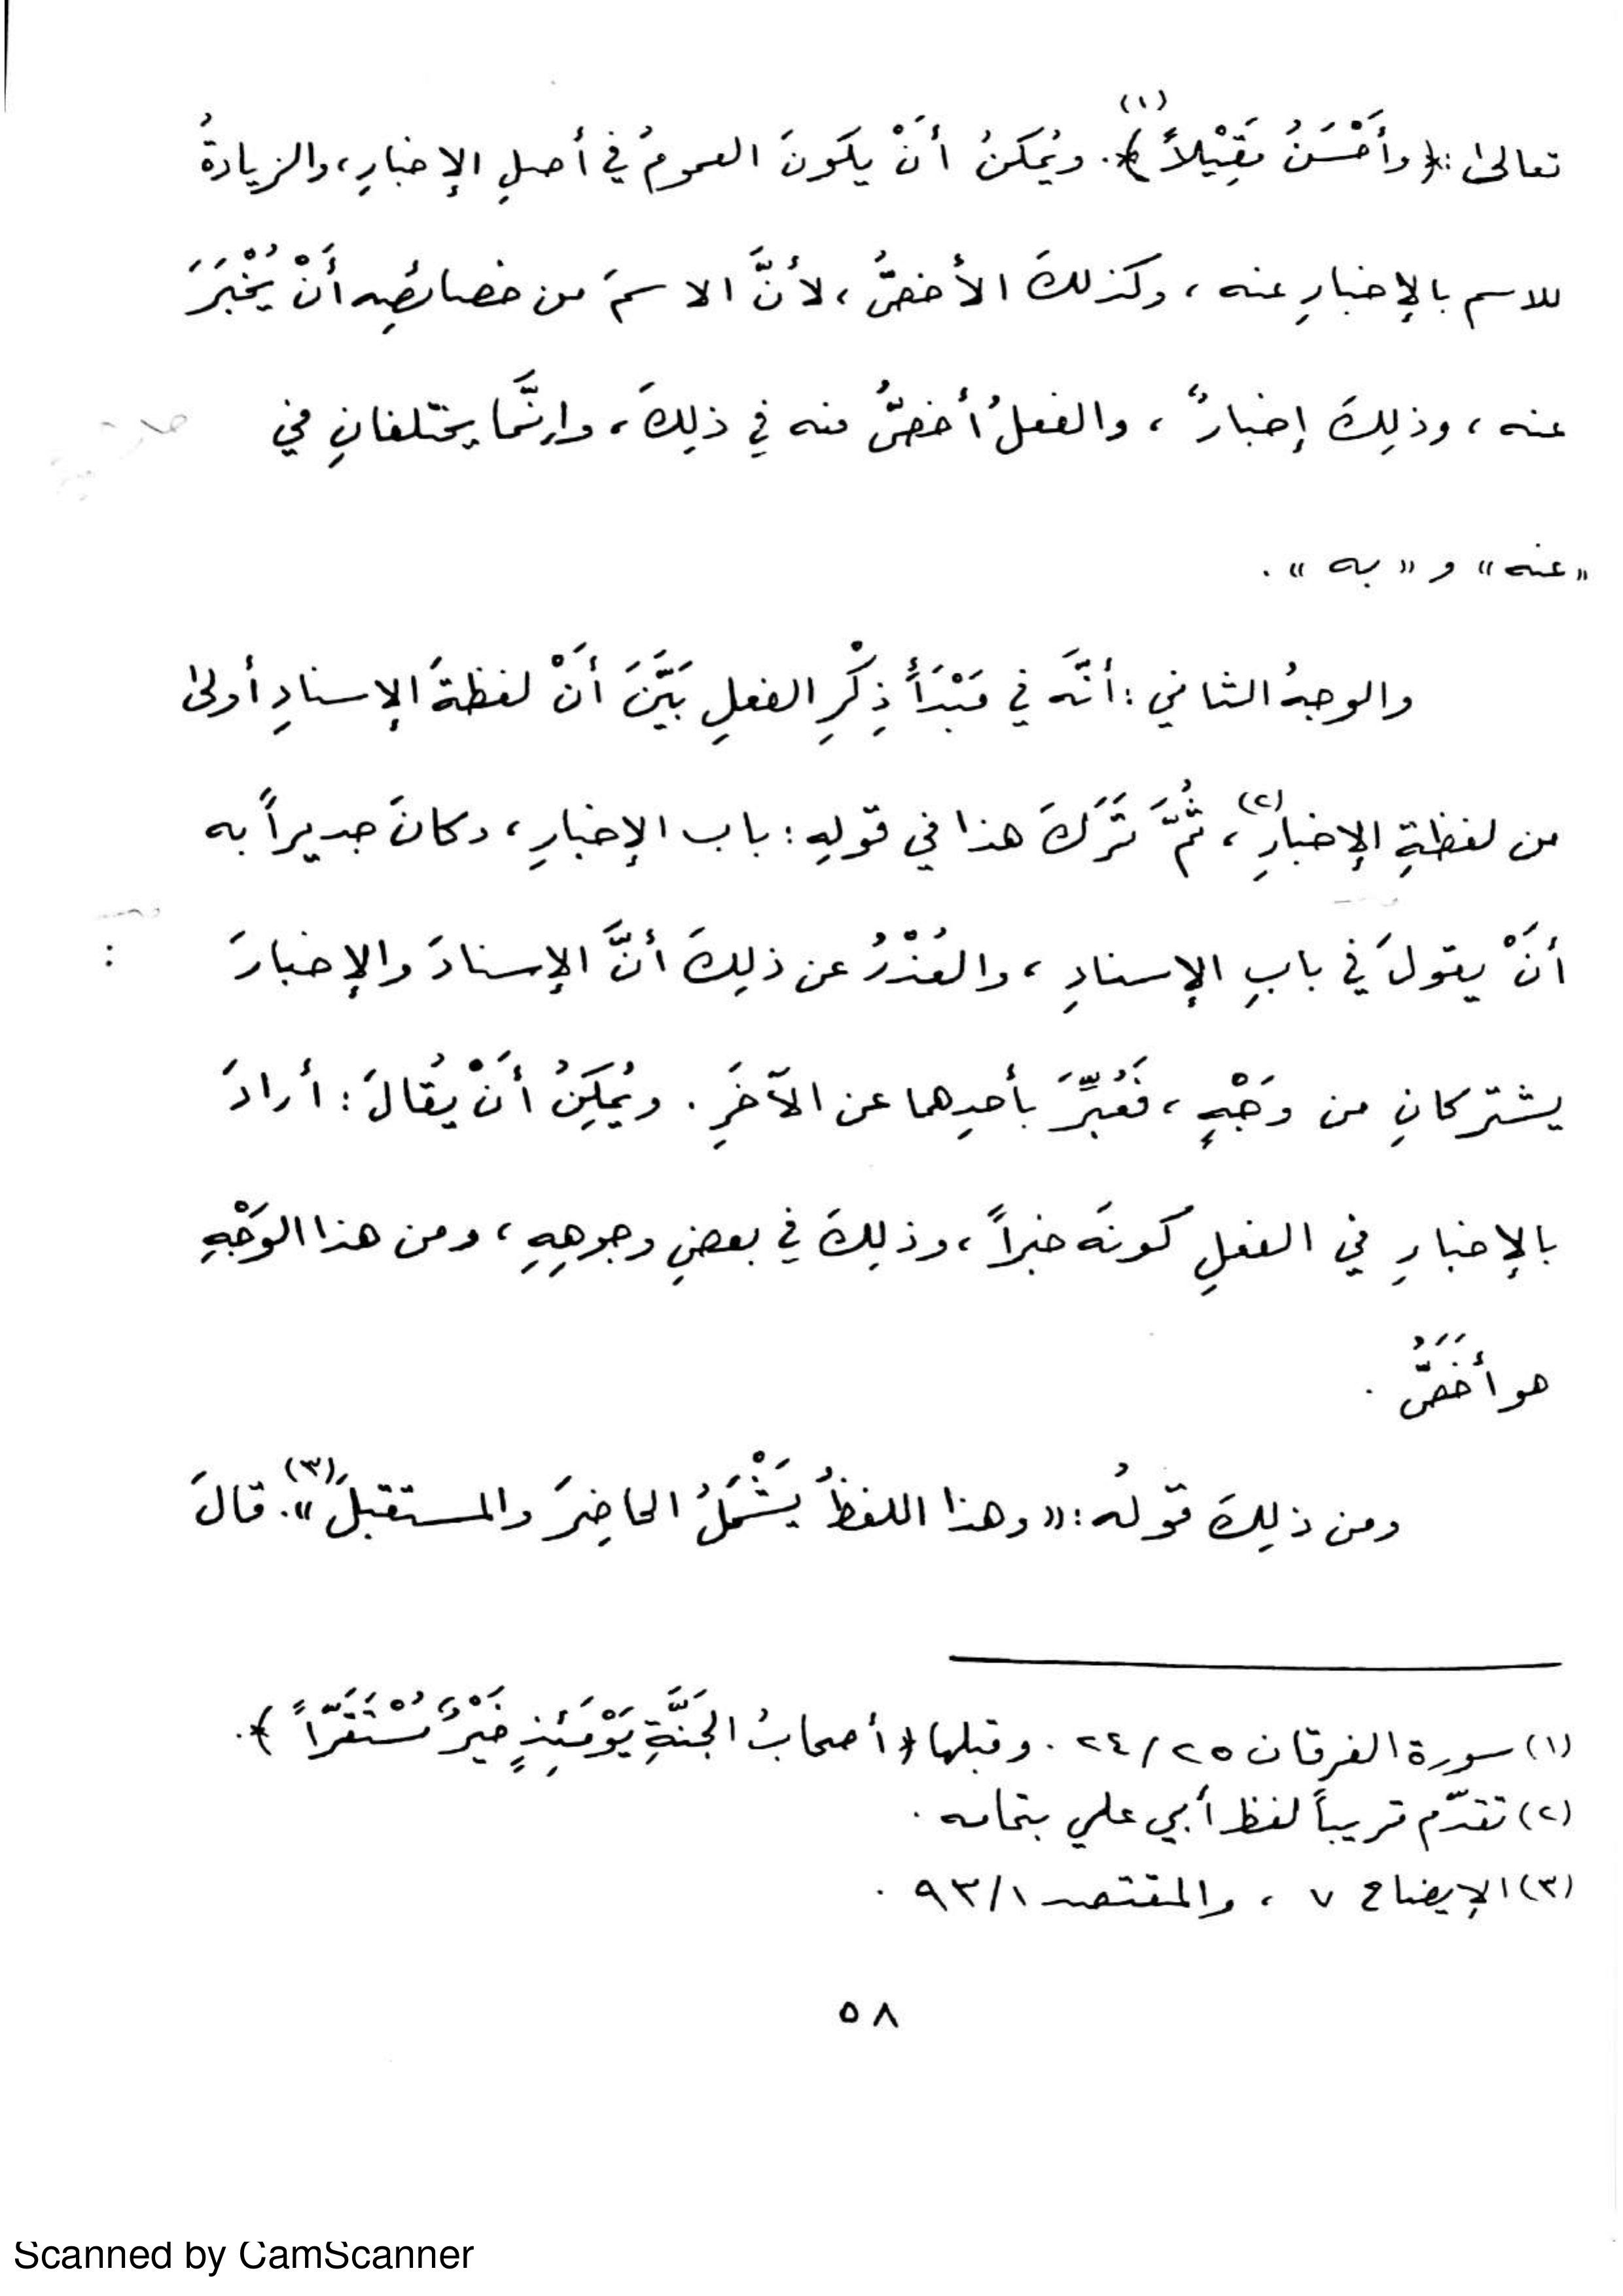 تعالىٰ : ﴿ وأَحْسَنُ مَقِيْلاً ﴾(١). ويُمكنُ أَنْ يكونَ العمومُ في أصلِ الإخبارِ، والزيادةُ
للاسم بالإخبارِ عنه ، وكذلكَ الأخصُّ ، لأنَّ الاسمَ من خصائصِه أَنْ يُخْبَرَ
عنه ، وذلِكَ إخبارٌ ، والفعلُ أخصُّ منه في ذلِكَ ، وإنَّما يختلفانِ في
«عنه» و «به» .
والوجهُ الثاني : أنَّه في مَبْدَأ ذِكْرِ الفعلِ بَيَّنَ أَنْ لفظةَ الإسنادِ أولىٰ
من لفظةِ الإخبارِ(٢) ، ثُمَّ تَرَكَ هذا في قولِهِ : باب الإخبارِ ، وكانَ جديراً به
أَنْ يقولَ في بابِ الإسنادِ ، والعُذْرُ عن ذلِكَ أنَّ الإسنادَ والإخبارَ :
يشتركانِ من وَجْهٍ ، فَعُبِّرَ بأحدِهما عن الآخَرِ . ويُمكِنُ أَنْ يُقالَ : أرادَ
بالإخبارِ في الفعلِ كونَه خبراً ، وذلِكَ في بعضِ وجوهِهِ ، ومن هذا الوَجْهِ
هو أَخَصُّ .
ومن ذلِكَ قولُه : «وهذا اللفظُ يَشْمَلُ الحاضِرَ والمستقبلَ»(٣). قالَ
(١) سورة الفرقان ٢٥/ ٢٤ . وقبلها ﴿ أصحابُ الجَنَّةِ يَوْمَئِذٍ خَيْرٌ مُسْتَقَرّاً ﴾ .
(٢) تقدّم قريباً لفظ أبي علي بتمامه .
(٣) الإيضاح ٧ ، والمقتصد ٩٣/١ .
٥٨
Scanned by CamScanner